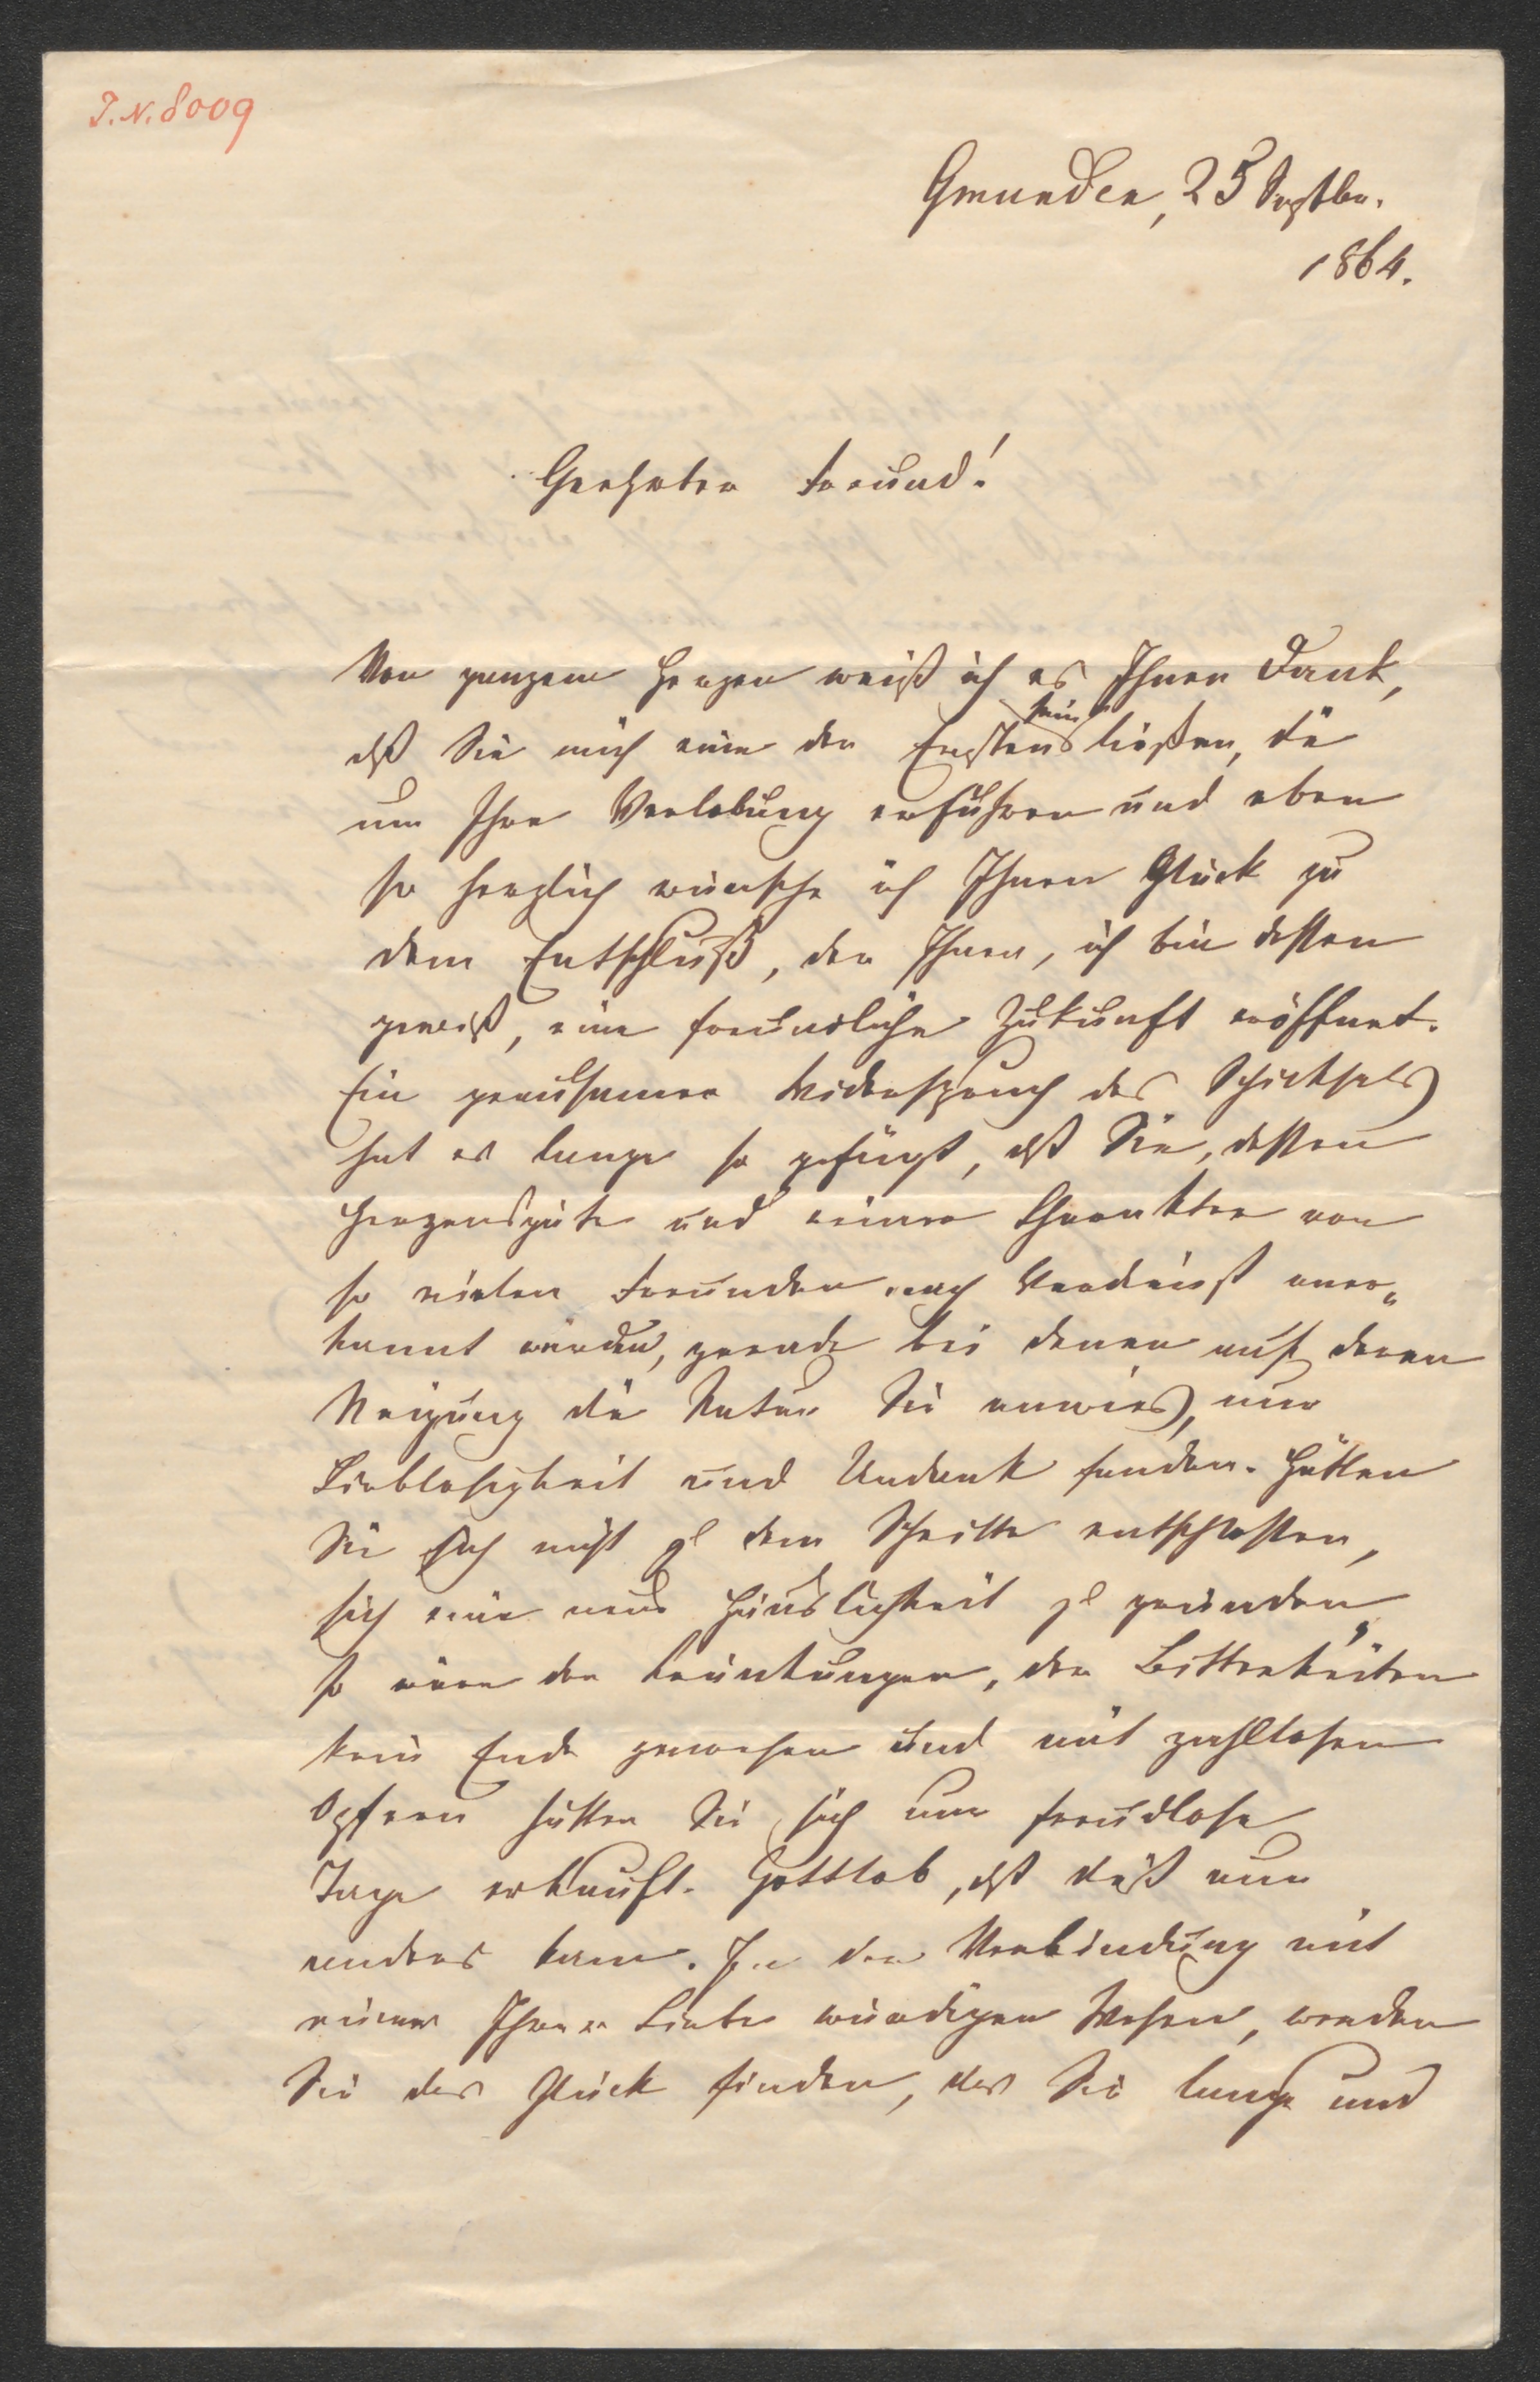 I.N. 8009
Gmunden, 25 Septbr.
1864.
Geehrter Freund!
Von ganzem Herzen weiß ich es Ihnen Dank,
dß Sie mich einen der Ersten sein ließen, die
um Ihre Verlobung erfuhren und eben
so herzlich wünsche ich Ihnen Glück zu
dem Entschluß, der Ihnen, ich bin dessen
gewiß, eine freundliche Zukunft eröffnet.
Ein grausamer Widerspruch des Schicksals
hat es lange so gefügt, dß Sie, dessen
Herzensgüte und reiner Charakter von
so vielen Freunden nach Verdienst aner„
kannt werden, gerade bei denen auf deren
Neigung die Natur Sie anwies, nur
Lieblosigkeit und Undank fanden. Hätten
Sie sich nicht zu dem Schritte entschlossen,
sich eine neue Häuslichkeit zu gründen,
so wäre der Kränkungen, der Bitterkeiten
kein Ende gewesen und mit zahllosen
Opfern hätten Sie sich nur freudlose
Tage erkauft. Gottlob, dß dieß nun
anders kam. In der Verbindung mit
einem Ihrer Liebe würdigen Wesen, werden
Sie das Glück finden, das Sie lange und